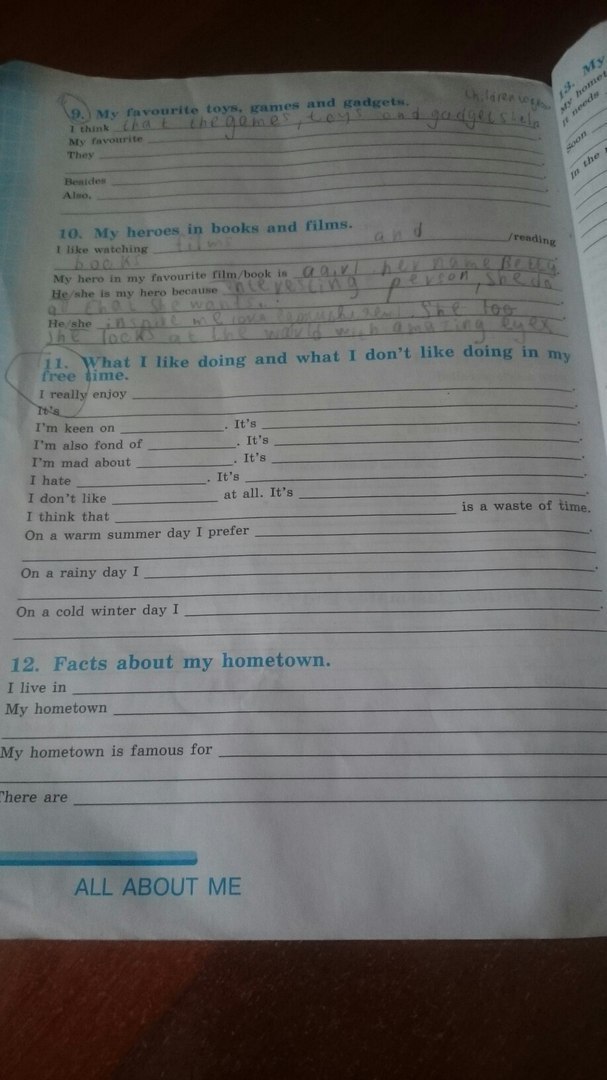 9. My favourite toys, games and gadgets.
I think that the games, toys and gadgets help
My favourite
They
Besides
Also,
10. My heroes in books and films.
I like watching films and /reading
books
My hero in my favourite film/book is a girl her name Betty.
He/she is my hero because interesting person, she do
all that she wants.
He/she inspire me She too
She looks at the world with amazing eyes
11. What I like doing and what I don't like doing in my
free time.
I really enjoy .
It's .
I'm keen on . It's .
I'm also fond of . It's .
I'm mad about . It's .
I hate . It's .
I don't like at all. It's .
I think that is a waste of time.
On a warm summer day I prefer .
On a rainy day I .
On a cold winter day I .
12. Facts about my hometown.
I live in
My hometown
My hometown is famous for
There are
ALL ABOUT ME
13. My
My homet
It needs
Soon
In the